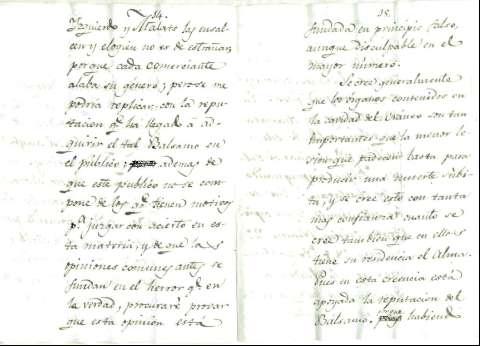 14.
Izquierdo y Malato las ensal-
cen y elogien no es de estrañar,
porque cada comerciante
alaba su género; pero se me
podria replicar con la repu-
tacion q.e ha llegado á ad-
quirir el tal Balsamo en
el público; ademas de
que este publico no se com-
pone de los q.e tienen motivos
p.a juzgar con acierto en es-
ta materia, y de que las
opiniones comunes antes se
fundan en el herror q.e en
la verdad, procuraré provar
que esta opinión está
15.
fundada en principio falso,
aunque disculpable en el
mayor número.
Se cree generalmente
que los órganos contenidos en
la cavidad del Craneo son tan
importantes que la menor le-
sion que padecieran basta para
producir una muerte súbi-
ta, y se cree esto con tanta
mas confianza cuanto se
cree tambien que en ellos
tiene su residencia el Alma.
Pues en esta creencia está
apoyada la reputacion del
Balsamo. porque habiend